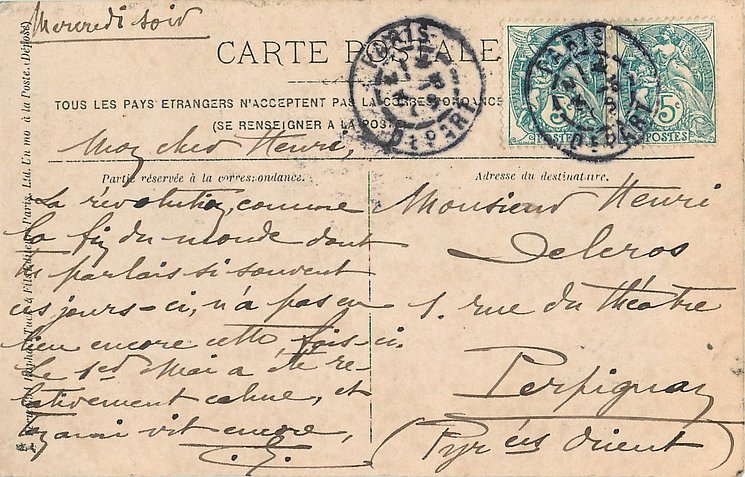 Mercredi soir
CARTE POSTALE
TOUS LES PAYS ETRANGERS N'ACCEPTENT PAS LA CORRESPONDANCE
(SE RENSEIGNER A LA POSTE)
PARIS
DÉPART
PARIS
DÉPART
5c
POSTES
Mon cher Henri,
Partie réservée à la correspondance.
La révolution, comme
la fin du monde dont
tu parlais si souvent
ces jours-ci, n'a pas eu
lieu encore cette fois-ci.
Le 1er Mai a été re-
lativement calme, et
vit encore,
Adresse du destinataire.
Monsieur Henri
Delcros
1. rue du théâtre
Perpignan
(Pyrées Orient)
Raphael Tuck & Fils Paris. Ltd. Un mo à la Poste. (Déposé)